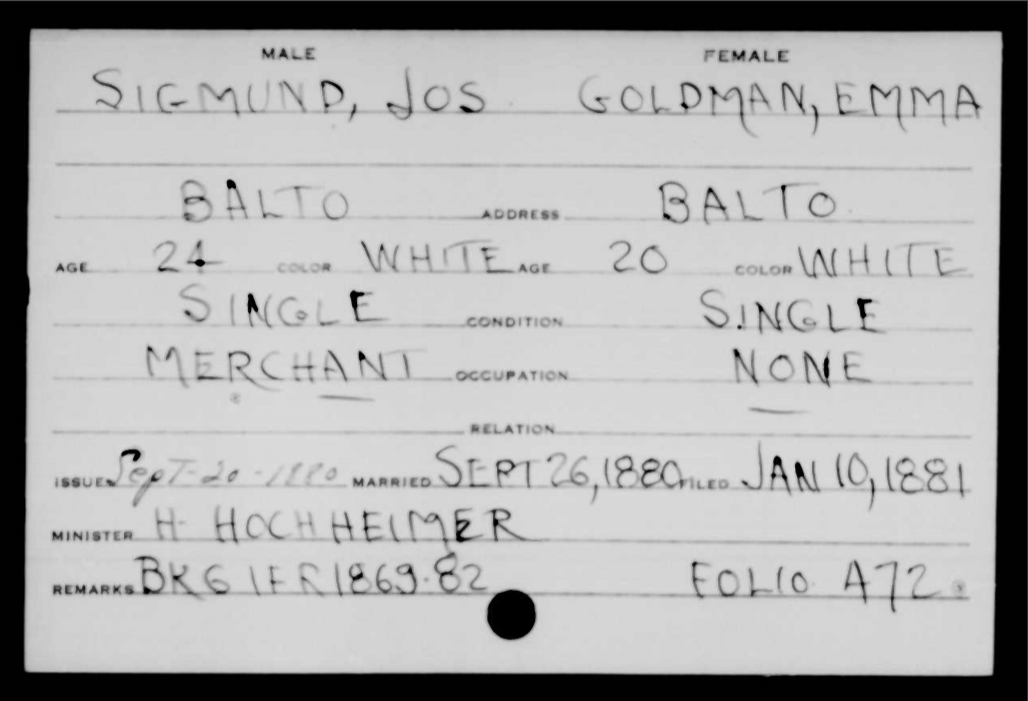 MALE FEMALE
SIGMUND, JOS GOLDMAN, EMMA
BALTO ADDRESS BALTO
AGE 24 COLOR WHITE AGE 20 COLOR WHITE
SINGLE CONDITION SINGLE
MERCHANT OCCUPATION NONE
RELATION
ISSUED Sept-20-1880 MARRIED SEPT 26, 1880 FILED JAN 10, 1881
MINISTER H HOCHHEIMER
REMARKS BK 6 1FR 1869-82 FOLIO 472